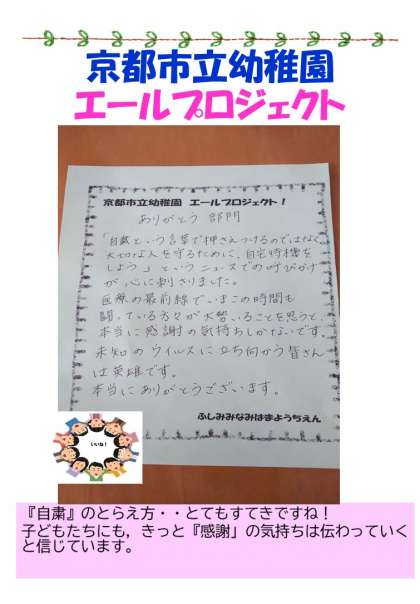 京都市立幼稚園
エールプロジェクト
京都市立幼稚園 エールプロジェクト!
ありがとう 部門
「自粛という言葉で押さえつけるのではなく
大切な人を守るために、自宅待機を
しよう」というニュースでの呼びかけ
が心に刺さりました。
医療の最前線でいまこの時間も
闘っている方々が大勢いることを思うと、
本当に感謝の気持ちしかないです。
未知のウイルスに立ち向かう皆さん
は英雄です。
本当にありがとうございます。
ふしみみなみはまようちえん
いいね!
『自粛』のとらえ方・・とてもすてきですね!
子どもたちにも,きっと『感謝』の気持ちは伝わっていく
と信じています。